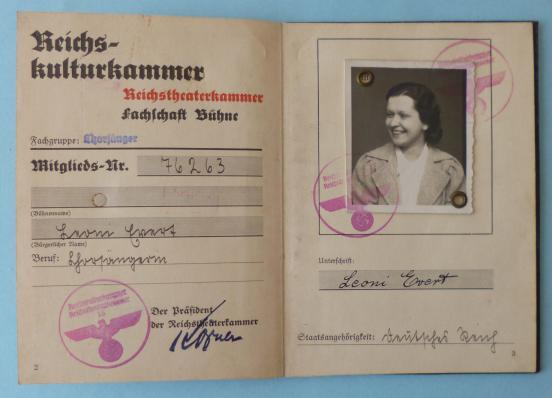 Reichs-
kulturkammer
Reichstheaterkammer
Fachschaft Bühne
Fachgruppe: Chorsänger
Mitglieds-Nr. 76263
(Bühnenname)
Leoni Evert
(Bürgerlicher Name)
Beruf: Chorsängerin
Der Präsident
der Reichstheaterkammer
Körner
Reichskulturkammer
Reichstheaterkammer
2
Unterschrift:
Leoni Evert
Staatsangehörigkeit: Deutsches Reich
3